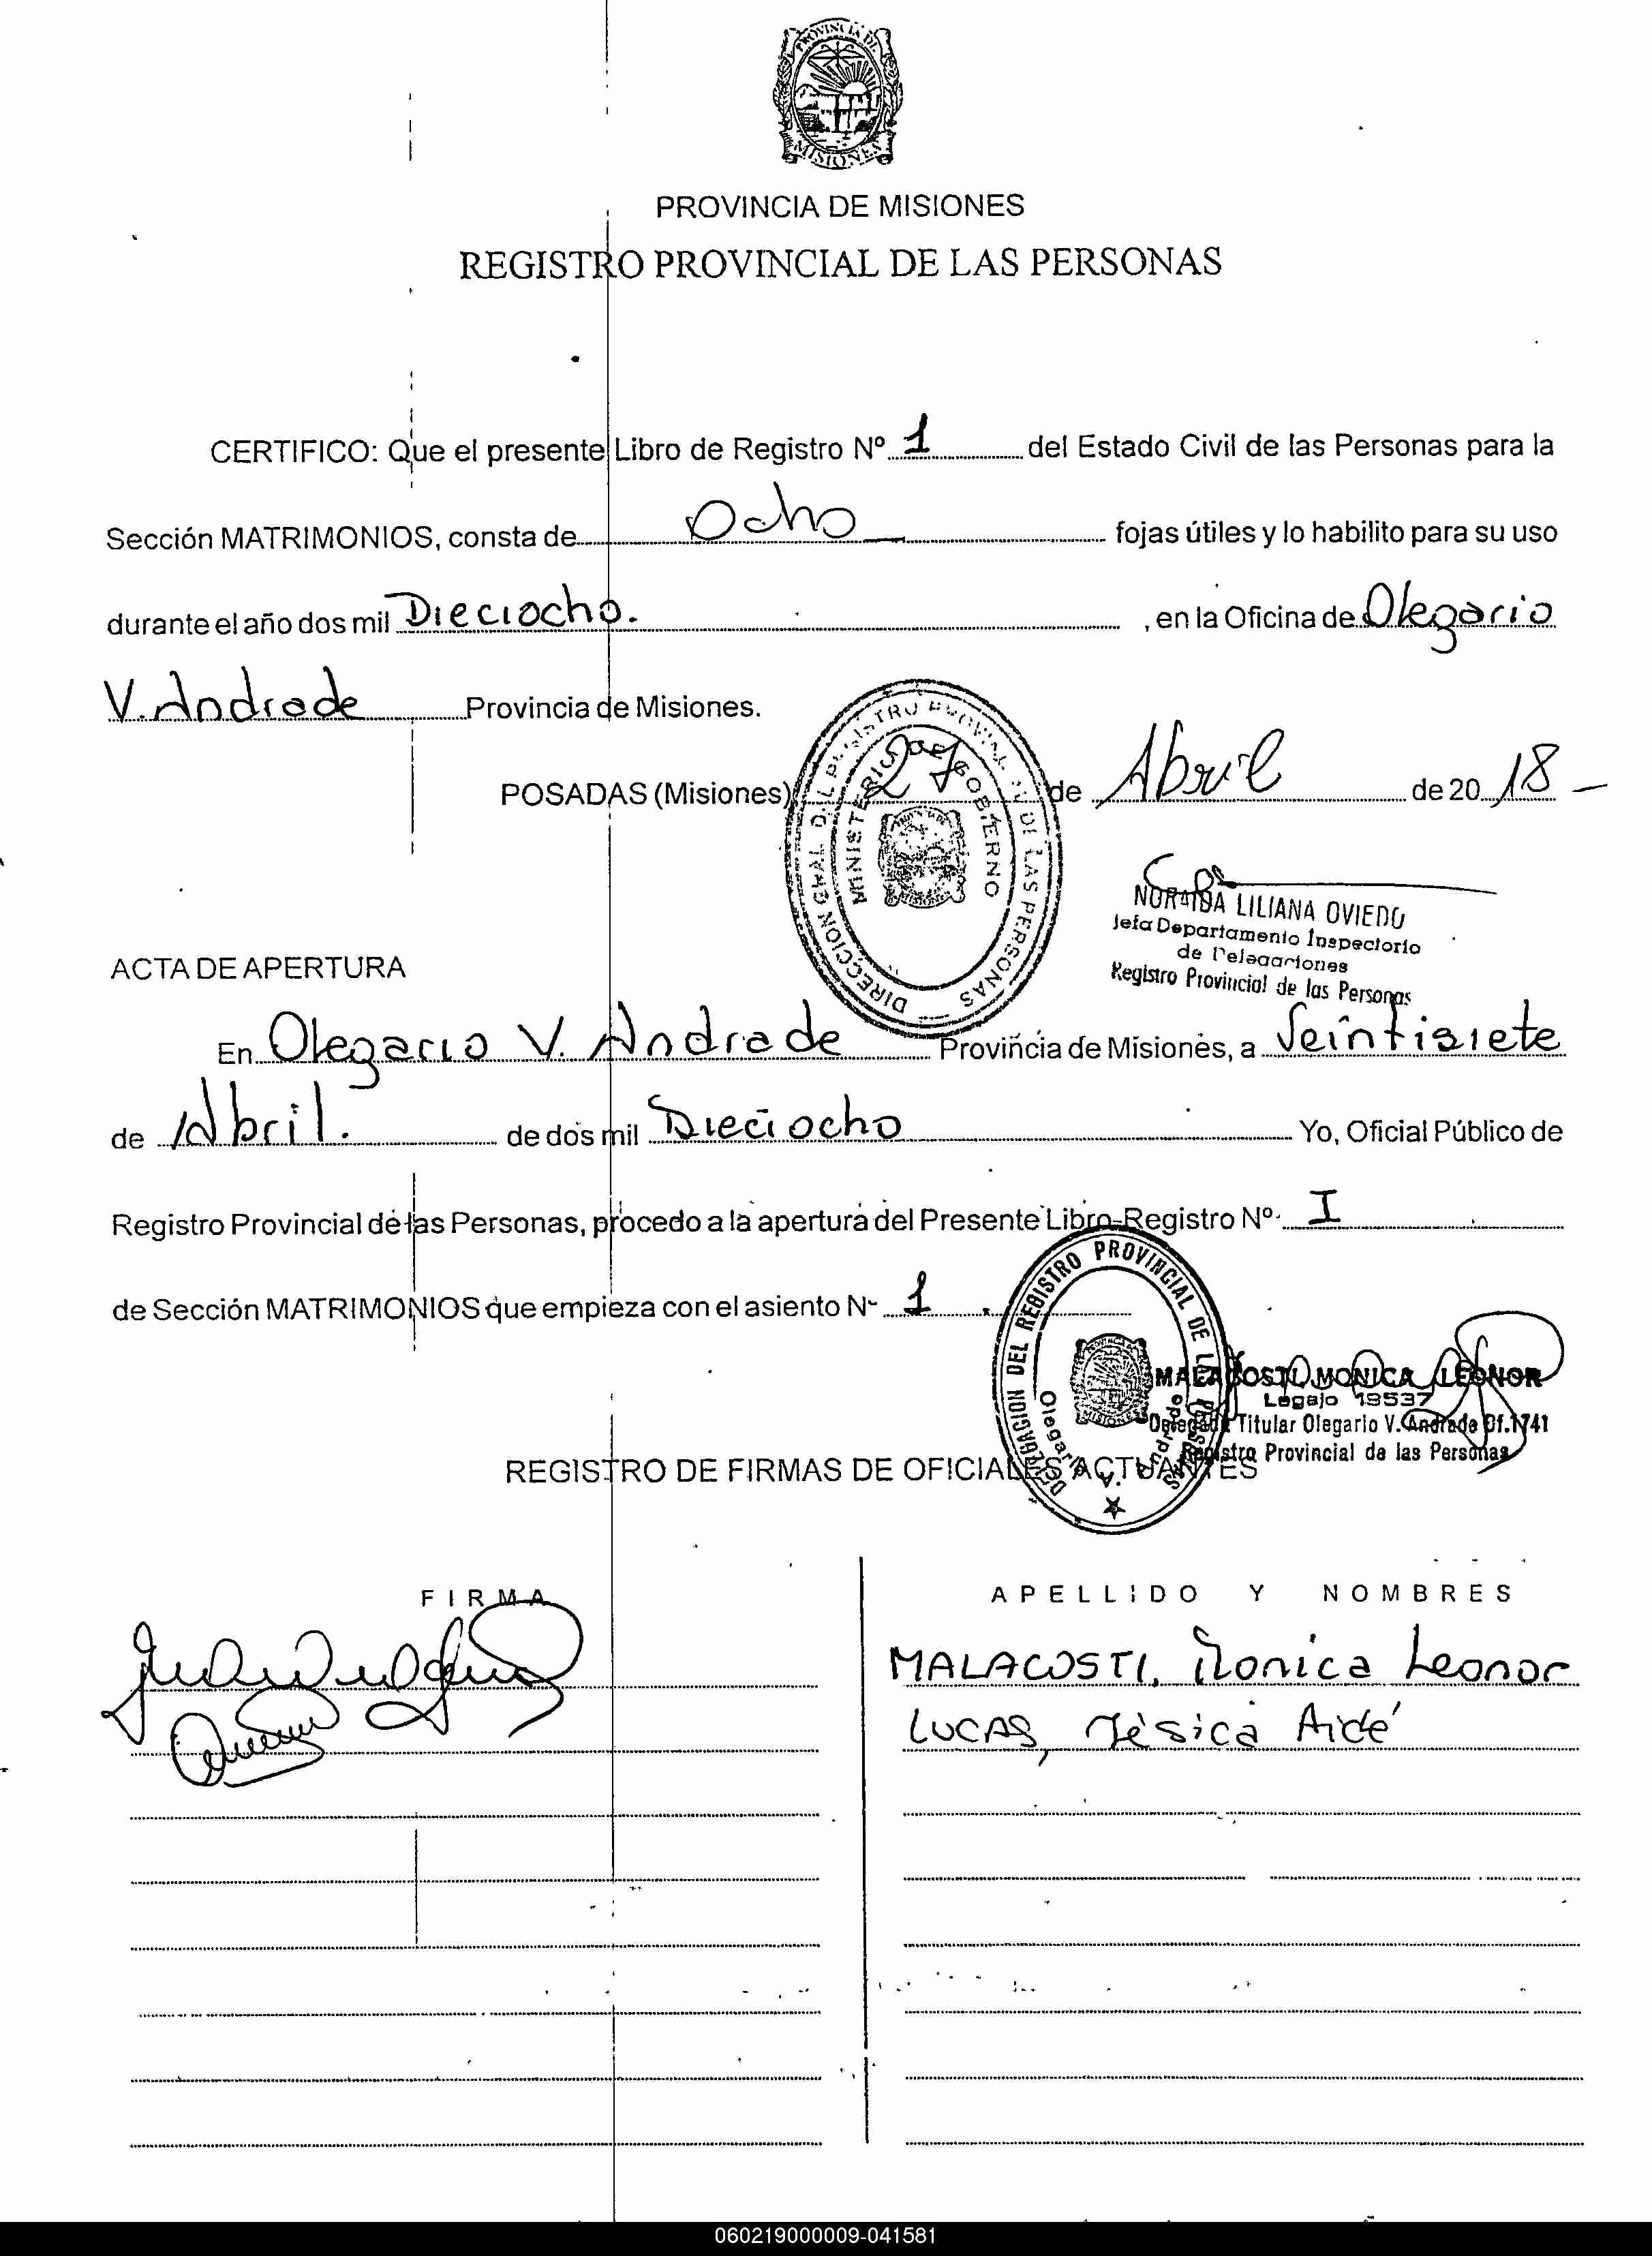 PROVINCIA DE
MISIONES
PROVINCIA DE MISIONES
REGISTRO PROVINCIAL DE LAS PERSONAS
CERTIFICO: Que el presente Libro de Registro Nº 1 del Estado Civil de las Personas para la
Sección MATRIMONIOS, consta de Ocho fojas útiles y lo habilito para su uso
durante el año dos mil Dieciocho. , en la Oficina de Olegario
V. Andrade Provincia de Misiones.
POSADAS (Misiones) 27 de Abril de 20 18 -
DIRECCION GRAL DEL REGISTRO PROVINCIAL DE LAS PERSONAS
MINISTERIO DE GOBIERNO
NORAIDA LILIANA OVIEDO
Jefa Departamento Inspectorio
de Delegaciones
Registro Provincial de las Personas
ACTA DE APERTURA
En Olegario V. Andrade Provincia de Misiones, a Veintisiete
de Abril. de dos mil Dieciocho Yo, Oficial Público de
Registro Provincial de las Personas, procedo a la apertura del Presente Libro-Registro Nº I
de Sección MATRIMONIOS que empieza con el asiento Nº 1 .
DELEGACION DEL REGISTRO PROVINCIAL DE LAS PERSONAS
Olegario V. Andrade
MALACOSTI, MONICA LEONOR
Legajo 19537
Delegada Titular Olegario V. Andrade Of.1741
Registro Provincial de las Personas
REGISTRO DE FIRMAS DE OFICIALES ACTUANTES
FIRMA APELLIDO Y NOMBRES
MALACOSTI, Monica Leonor
LUCAS, Jésica Aidé
060219000009-041581